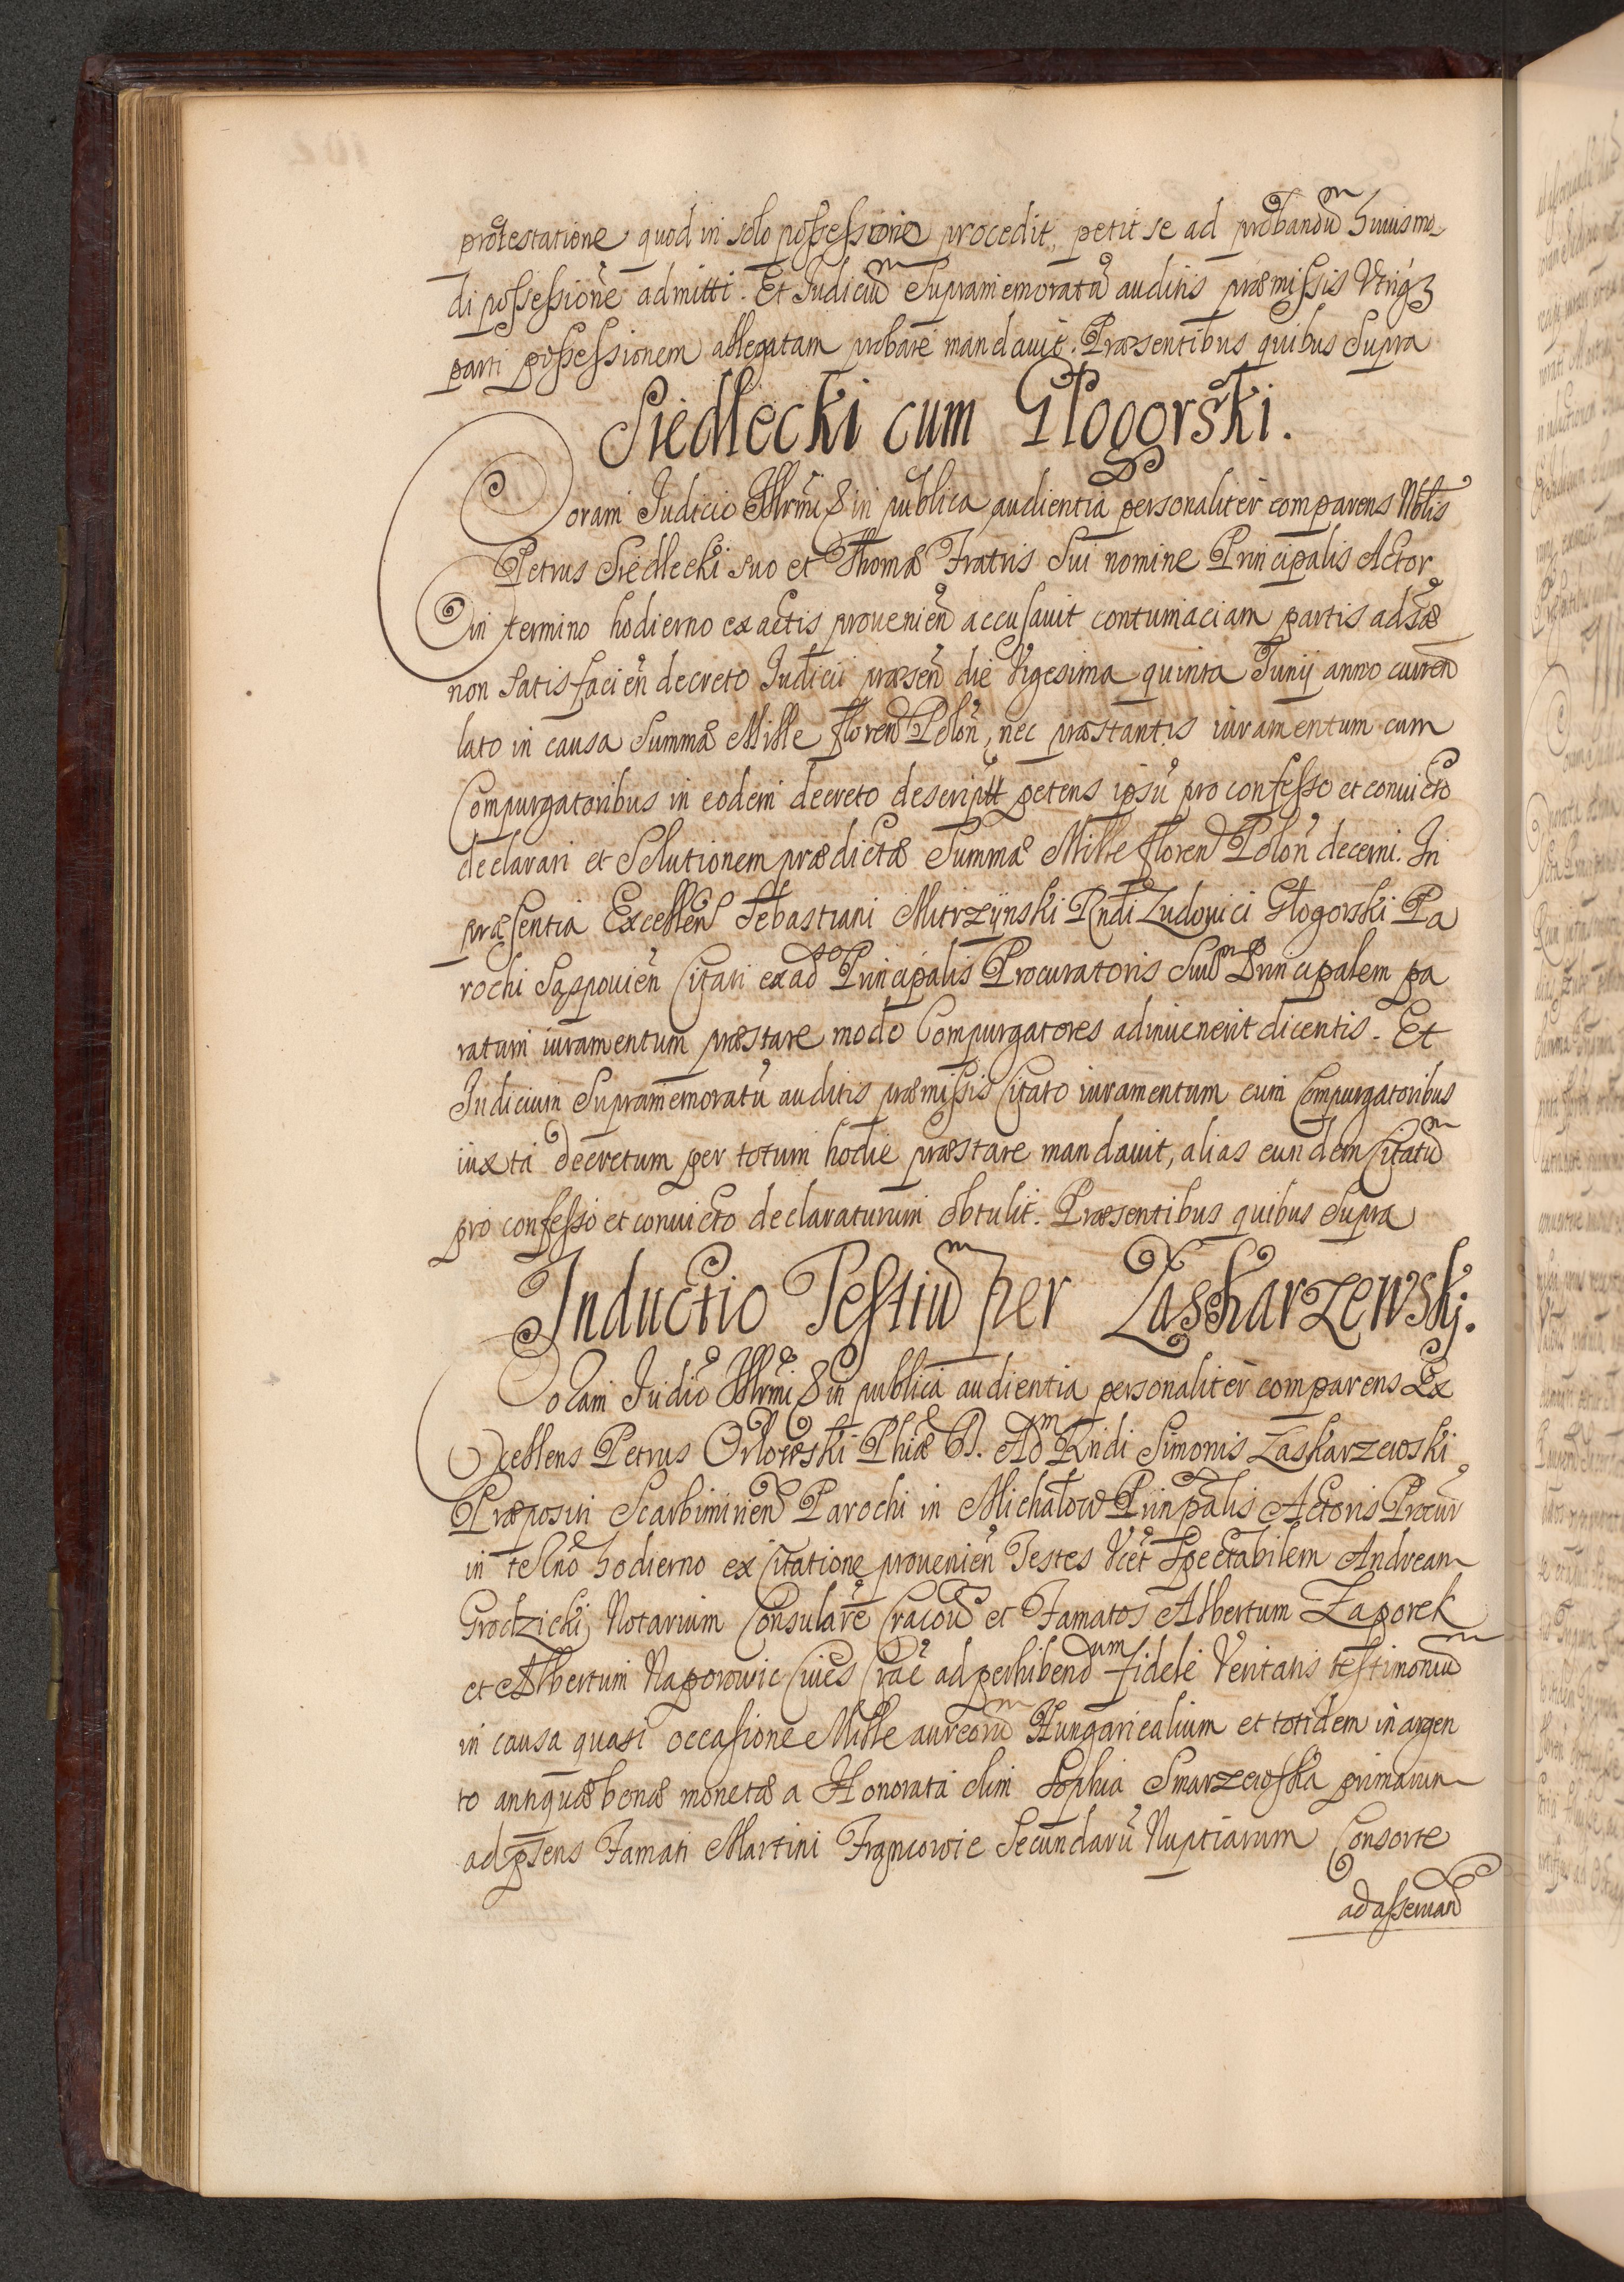 protestatione quod in solo possessorio procedit, petit se ad probandū huiusmo-
di possessionē admitti. Et Iudiciū Supramemoratū auditis præmissis Vtriq3
parti possessionem allegatam probare mandauit. Præsentibus quibus Supra
Siedlecki cum Głogorski.
Coram Iudicio Illrmi & in publica audientia personaliter comparens Nblis
Petrus Siedlecki suo et Thomæ Fratris Sui nomine Principalis Actor
in termino hodierno ex actis prouenień accusauit contumaciam partis adsæ
non Satisfacień decreto Iudicii præseń die Vigesima quinta Iunij anno curreń
lato in causa Summæ Mille floreń Poloń, nec præstantis iuramentum cum
Compurgatoribus in eodem decreto descriptt petens ipsū pro confesso et conuicto
declarari et Solutionem prædictæ Summæ Mille floreń Poloń decerni. In
præsentia Excelleń Sebastiani Mitrzÿnski Rndi Ludouici Głogorski Pa
rochi Saspouień Citati ex ad Principalis Procuratoris Suū Principalem pa
ratum iuramentum præstare modo Compurgatores adinuenerit dicentis. Et
Iudicium Supramemoratū auditis præmissis Citato iuramentum cum Compurgatoribus
iuxta decretum per totum hodie præstare mandauit, alias eundem Citatū
pro confesso et conuicto declaraturum obtulit. Præsentibus quibus Supra
Inductio Testiū per Zaskarzewskj.
Coram Iudio Illrmi & in publica audientia personaliter comparens Ex
cellens Petrus Orłowski Phiæ D. Adm Rndi Simonis Zaskarzewski
Præpositi Scarbimirień Parochi in Michałow Prinpalis Actoris Procur
in termno hodierno ex Citatione prouenień Testes Vcet Spectabilem Andream
Grodzicki Notarium Consularē Cracou et Famatos Albertum Zaporek
et Albertum Naporowic Ciues Crac ad perhibendum fidele Veritatis testimoniū
in causa quasi occasione Mille aureorū Hungaricalium et totidem in argen
to antiquæ bonæ monetæ a Honorata olim Sophia Smarzewska primarum
ad psens Famati Martini Francowic Secundarū Nuptiarum Consorte
ad asseruand